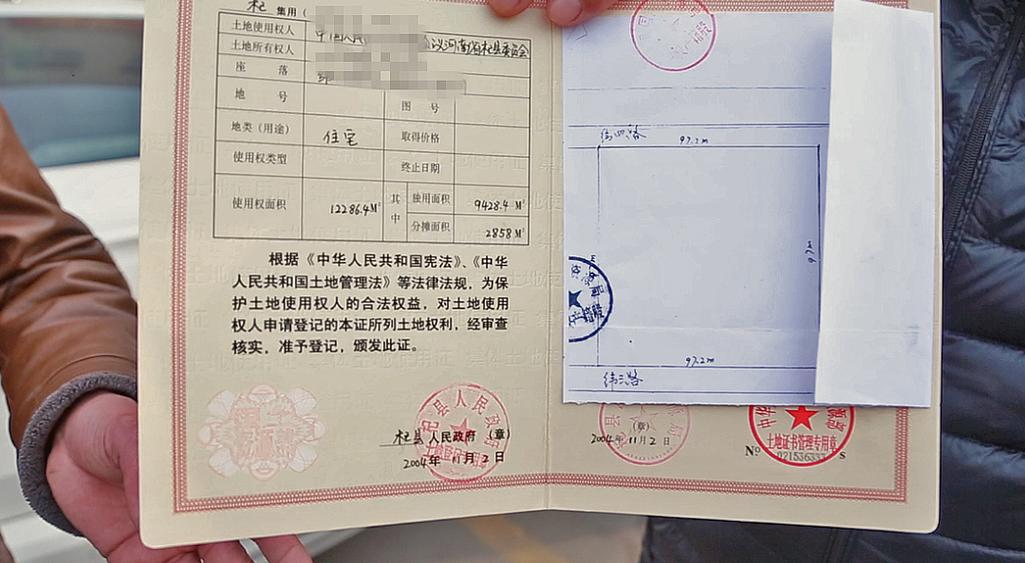 杞 集用（
土地使用权人 中国人民
土地所有权人 议河南省杞县委员会
座 落
地 号
图 号
地类（用途） 住宅 取得价格
使用权类型 终止日期
使用权面积 12286.4M² 其中 独用面积 9428.4M²
分摊面积 2858M²
根据《中华人民共和国宪法》、《中华
人民共和国土地管理法》等法律法规，为保
护土地使用权人的合法权益，对土地使用
权人申请登记的本证所列土地权利，经审查
核实，准予登记，颁发此证。
杞县人民政府（章）
2004年11月2日
纬四路
97.2m
97m
97.2m
纬三路
（章）
2004年11月2日
土地证书管理专用章
Nº 021536337